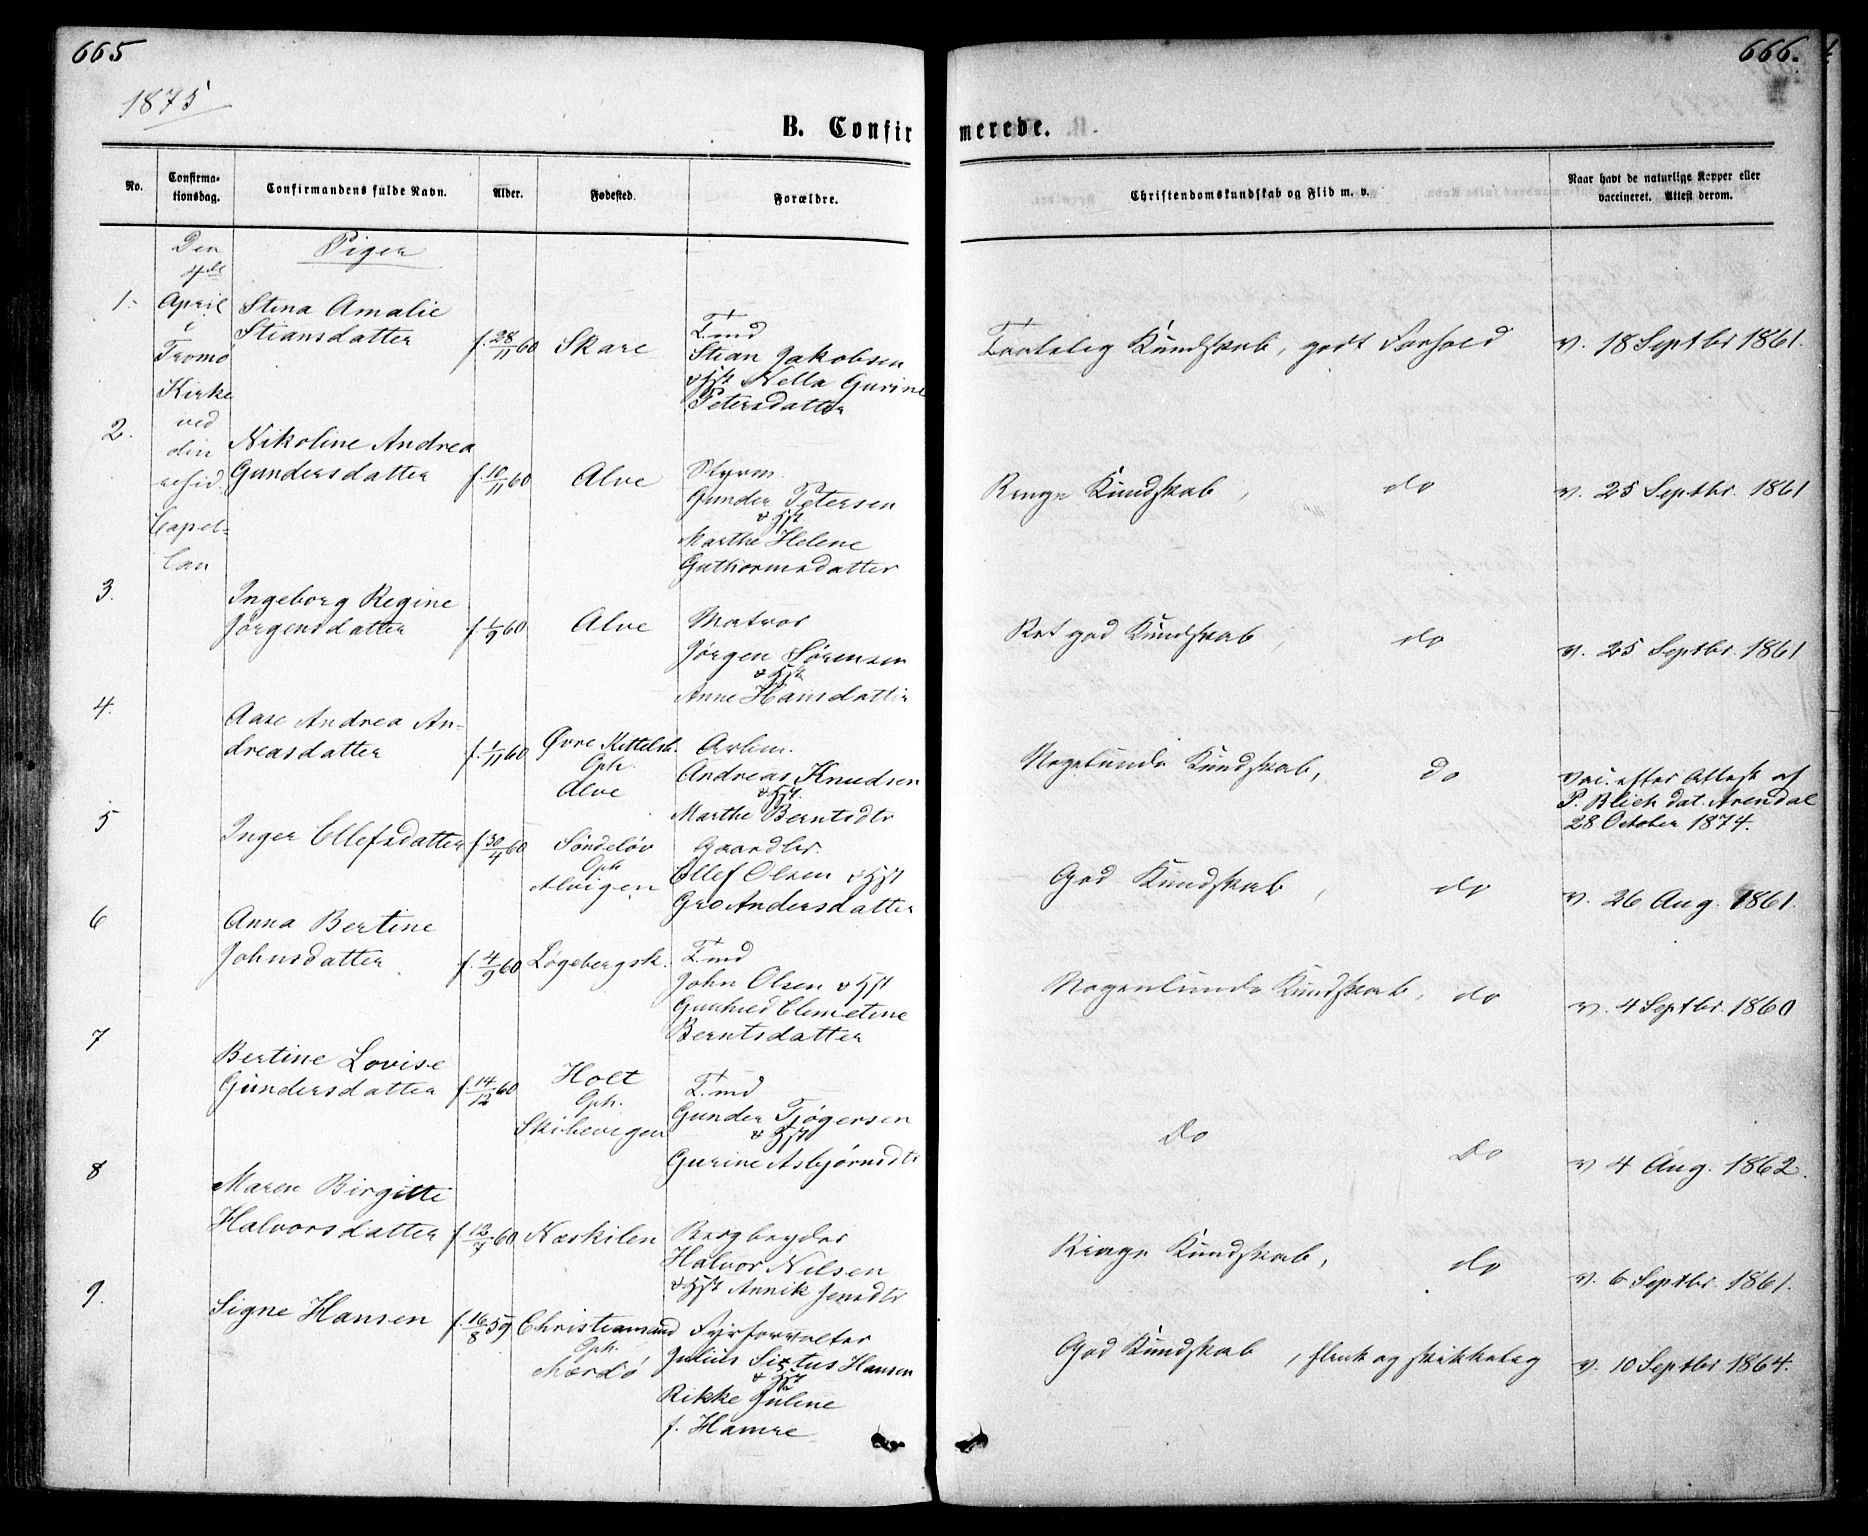 665
666.
1875
B. Confirmerede.
No.
Confirmationsdag.
Confirmandens fulde Navn.
Alder.
Fødested.
Forældre.
Christendomskundskab og Flid m. v.
Naar havt de naturlige Kopper eller vaccineret. Attest derom.
Den
4de
April
i
Tromø
Kirke
ved
den
resid.
Capel-
lan
Piger
1.
Stina Amalie
Stiansdatter
f. 28/11 60
Skare
F.md
Stian Jakobsen
& Hst Nella Gurine
Petersdatter
Kundskab, godt Forhold
v. 18 Septbr 1861.
2.
Nikoline Andrea
Gundersdatter
f. 10/11 60
Alve
Styrm.
Gunder Petersen
& Hst
Marthe Helene
Guthormsdatter
Ringe Kundskab, do
v. 25 Septbr. 1861
3.
Ingeborg Regine
Jørgensdatter
f. 1/9 60
Alve
Matros
Jørgen Sørensen
& Hst
Anne Hansdatter
Ret god Kundskab, do
v. 25 Septbr. 1861
4.
Aase Andrea An-
dreasdatter
f. 1/11 60
Øvre Kittelsb.
Oph.
Alve
Arbm.
Andreas Knudsen
& Hst.
Marthe Berntsdtr
Nogenlunde Kundskab, do
Vac. efter Attest af
P. Blich dat. Arendal
28 October 1874.
5
Inger Ellefsdatter
f. 30/4 60
Søndeløv
Oph
Alvigen
Gaardbr.
Ellef Olsen & Hst
Gro Andersdatter
God Kundskab, do
v. 26 Aug. 1861.
6
Anna Bertine
Johnsdatter
f. 4/9 60
Løgebergsk.
F.md
John Olsen & Hst
Gunhild Clemetine
Berntsdatter
Nogenlunde Kundskab, do
v. 4 Septbr. 1860
7
Bertine Lovise
Gundersdatter
f. 14/12 60
Holt
Oph.
Skibevigen
F.md
Gunder Tjøgersen
& Hst
Gurine Asbjørnsdtr
Do Do
v 4 Aug. 1862.
8
Maren Birgitte
Halvorsdatter
f. 12/7 60
Næskilen
Bergbryder
Halvor Nilsen
& Hst Annik Jensdtr
Ringe Kundskab, do
v. 6 Septbr. 1861.
9.
Signe Hansen
f. 16/8 59
Christiansand
Oph.
Mærdø
Fyrforvalter
Julius Sixtus Hansen
& Hst
Rikke Juline
f. Hamre
God Kundskab, flink og skikkelig
v. 10 Septbr 1864.